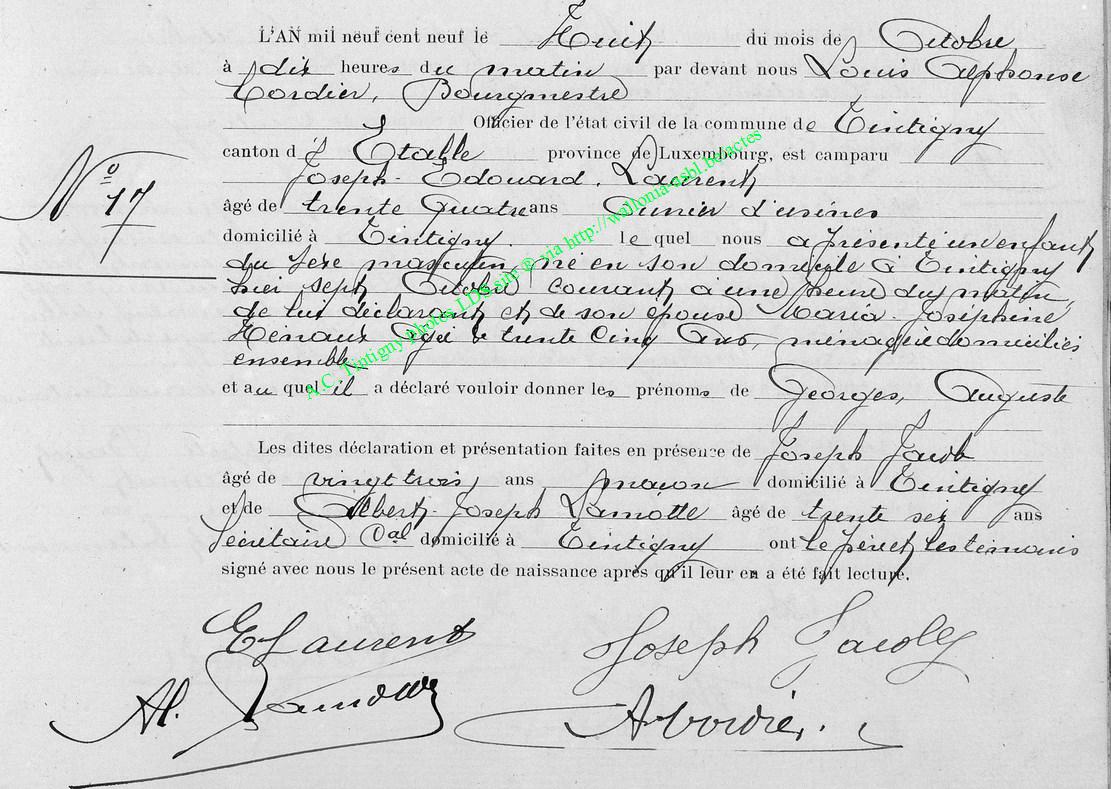 L'AN mil neuf cent neuf le Huit du mois de Octobre
à dix heures du matin par devant nous Louis Alphonse
Cordier, Bourgmestre
Officier de l'état civil de la commune de Tintigny
canton d' Etalle province de Luxembourg, est comparu
Joseph-Edouard, Laurent
N° 17
âgé de trente Quatre ans Ouvrier d'usines
domicilié à Tintigny. lequel nous a présenté un enfant
du sexe masculin, né en son domicile à Tintigny
hier sept Octobre courant à une heure du matin,
de lui déclarant et de son épouse Maria-Joséphine
Hénaux Agée de trente Cinq Ans, ménagère domiciliés
ensemble
et auquel il a déclaré vouloir donner les prénoms de Georges, Auguste
Les dites déclaration et présentation faites en présence de Joseph Jacob
âgé de vingt trois ans maçon domicilié à Tintigny
et de Albert-Joseph Lamotte âgé de trente six ans
Secrétaire Cal domicilié à Tintigny ont le père et les témoins
signé avec nous le présent acte de naissance après qu'il leur en a été fait lecture.
E Laurent Joseph Jacob
Al. Lamotte A Cordier.
A.C. Tintigny Photos LDS site ® via http://wallonia-asbl.be/actes